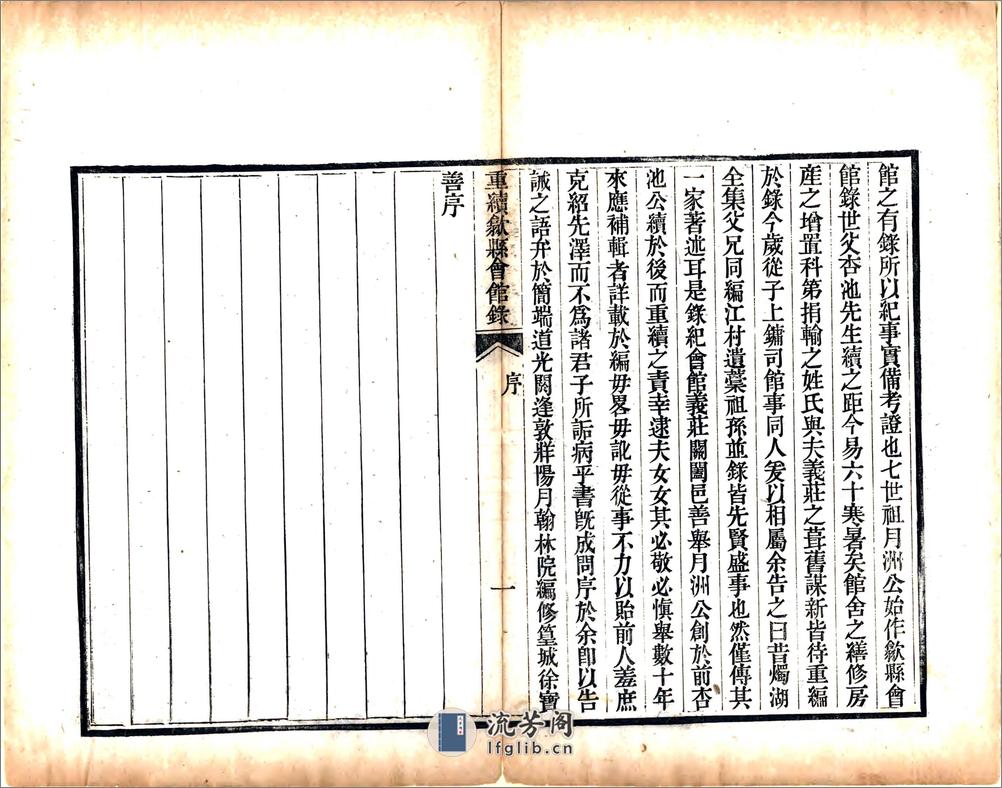 館之有錄所以紀事實備考證也七世祖月洲公始作歙縣會
館錄世父杏池先生續之距今易六十寒暑矣館舍之繕修房
產之增置科第捐輸之姓氏與夫義莊之葺舊謀新皆待重編
於錄今歲從子上鏞司館事同人爰以相屬余告之曰昔燭湖
全集父兄同編江村遺藁祖孫並錄皆先賢盛事也然僅傳其
一家著述耳是錄紀會館義莊關闔邑善舉月洲公創於前杏
池公續於後而重續之責幸逮夫女女其必敬必慎舉數十年
來應補輯者詳載於編毋畧毋訛毋從事不力以貽前人羞庶
克紹先澤而不為諸君子所詬病乎書旣成問序於余卽以告
誡之語弁於簡端道光閼逢敦牂陽月翰林院編修篁城徐寶
善序
重續歙縣會館錄
序
一
流芳阁
lfglib.cn